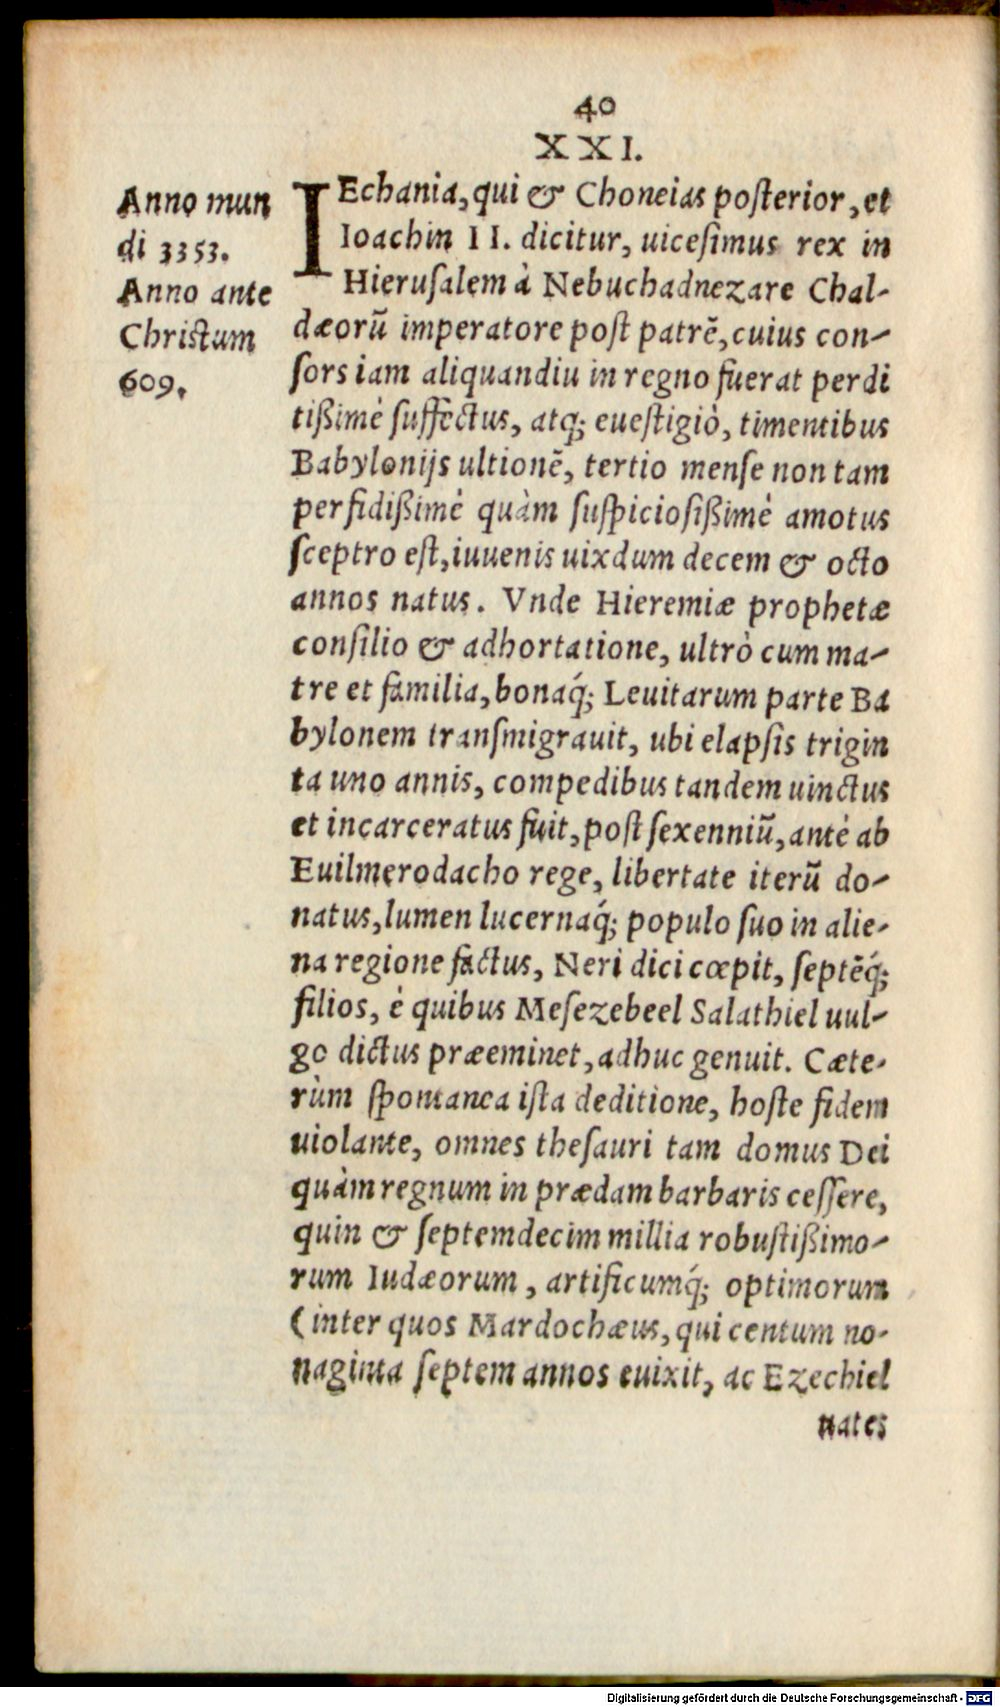 40
XXI.
Anno mun
di 3353.
Anno ante
Christum
609.
IEchania, qui & Choneias posterior, et
Ioachin II. dicitur, uicesimus rex in
Hierusalem à Nebuchadnezare Chal-
dæorũ imperatore post patrẽ, cuius con-
sors iam aliquandiu in regno fuerat perdi
tißimè suffectus, atq; euestigiò, timentibus
Babylonijs ultionẽ, tertio mense non tam
perfidißimè quàm suspiciosißimè amotus
sceptro est, iuuenis uixdum decem & octo
annos natus. Vnde Hieremiæ prophetæ
consilio & adhortatione, ultrò cum ma-
tre et familia, bonaq́; Leuitarum parte Ba
bylonem transmigrauit, ubi elapsis trigin
ta uno annis, compedibus tandem uinctus
et incarceratus fuit, post sexenniũ, antè ab
Euilmerodacho rege, libertate iterũ do-
natus, lumen lucernaq́; populo suo in alie-
na regione factus, Neri dici cœpit, septẽq́;
filios, è quibus Mesezebeel Salathiel uul-
go dictus præeminet, adhuc genuit. Cæte-
rùm spontanea ista deditione, hoste fidem
uiolante, omnes thesauri tam domus Dei
quàm regnum in prædam barbaris cessere,
quin & septemdecim millia robustißimo-
rum Iudæorum, artificumq́; optimorum
(inter quos Mardochæus, qui centum no-
naginta septem annos euixit, ac Ezechiel
nates
Digitalisierung gefördert durch die Deutsche Forschungsgemeinschaft - DFG